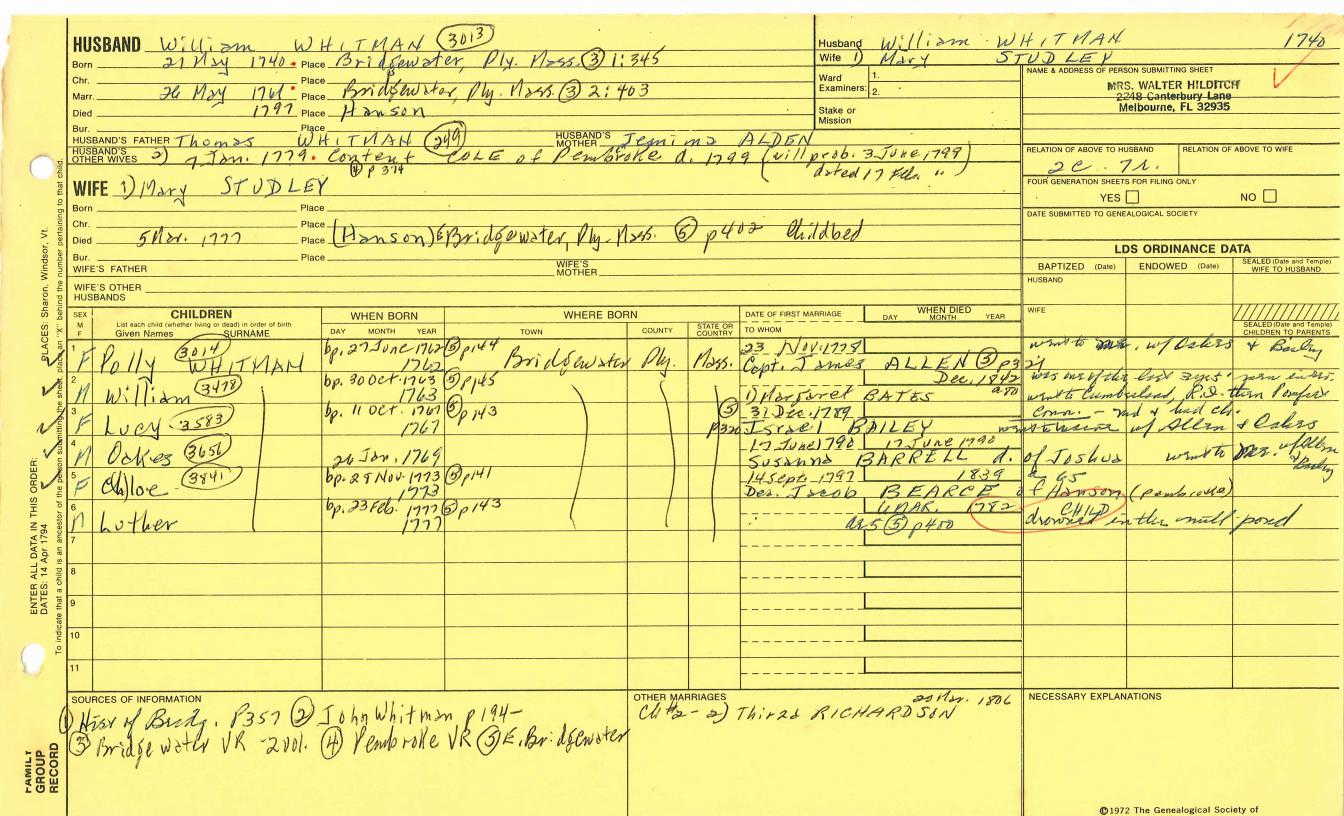 HUSBAND William WHITMAN 3013
Born 21 May 1740 Place Bridgewater, Ply. Mass. ③ 1:345
Chr. Place
Marr. 26 May 1761 Place Bridgewater, Ply. Mass. ③ 2:403
Died 1797 Place Hanson
Bur. Place
HUSBAND'S FATHER Thomas WHITMAN 249 HUSBAND'S MOTHER Jemima ALDEN
HUSBAND'S OTHER WIVES 2) 7 Jan. 1779. Content COLE of Pembroke d. 1799 (will prob. 3 June, 1799
④ p 374 dated 17 Feb. ")
WIFE 1) Mary STUDLEY
Born Place
Chr. Place
Died 5 Mar. 1777 Place (Hanson) E Bridgewater, Ply. Mass. ⑤ p402 Childbed
Bur. Place
WIFE'S FATHER WIFE'S MOTHER
WIFE'S OTHER HUSBANDS
Husband William WHITMAN 1740
Wife 1) Mary STUDLEY
Ward Examiners: 1.
2.
Stake or Mission
NAME & ADDRESS OF PERSON SUBMITTING SHEET
MRS. WALTER HILDITCH
2248 Canterbury Lane
Melbourne, FL 32935
RELATION OF ABOVE TO HUSBAND RELATION OF ABOVE TO WIFE
2c. 7r.
FOUR GENERATION SHEETS FOR FILING ONLY
YES NO
DATE SUBMITTED TO GENEALOGICAL SOCIETY
LDS ORDINANCE DATA
BAPTIZED (Date) ENDOWED (Date) SEALED (Date and Temple) WIFE TO HUSBAND
HUSBAND
WIFE
SEALED (Date and Temple) CHILDREN TO PARENTS
SEX M F
CHILDREN
List each child (whether living or dead) in order of birth
Given Names SURNAME
WHEN BORN
DAY MONTH YEAR
WHERE BORN
TOWN COUNTY STATE OR COUNTRY
DATE OF FIRST MARRIAGE
TO WHOM
WHEN DIED
DAY MONTH YEAR
1 F Polly WHITMAN 3014 bp. 27 June 1762 ⑤ p144 1762 Bridgewater Ply. Mass. 23 Nov. 1778 Capt. James ALLEN ③ p321 went to Me. w/ Oakes & Bailey
2 M William 3478 bp. 30 Oct. 1763 ⑤ p145 1763 1) Margaret BATES Dec. 1842 a 80
went to Cumberland, R.I. then Pomfret Conn. - md & had ch.
3 F Lucy 3583 bp. 11 Oct. 1767 ⑤ p143 1767 ⑤ p320 31 Dec. 1789 Israel BAILEY w/ Allen & Oakes
4 M Oakes 3656 26 Jan. 1769 17 June 1790 17 June 1790 Susanna BARRELL d. of Joshua went to Me. w/ Allen & Bailey
5 F Chloe 3841 bp. 28 Nov. 1773 ⑤ p141 1773 14 Sept. 1797 Dea. Jacob BEARCE of Hanson (Pembroke) 1839 a 65
6 M Luther bp. 23 Feb. 1777 ⑤ p143 1777 6 MAR. 1782 CHILD ae 5 ⑤ p400 drowned in the mill pond
7
8
9
10
11
SOURCES OF INFORMATION
① Hist of Bridg. P357 ② John Whitman p 194-
③ Bridgewater VR - 2 vol. ④ Pembroke VR ⑤ E. Bridgewater
OTHER MARRIAGES 23 Mar. 1806
Ch #2 - 2) Thirza RICHARDSON
NECESSARY EXPLANATIONS
©1972 The Genealogical Society of
ENTER ALL DATA IN THIS ORDER:
DATES: 14 Apr 1794
PLACES: Sharon, Windsor, Vt.
To indicate that a child is an ancestor of the person submitting the sheet, place an "X" behind the number pertaining to that child.
FAMILY GROUP RECORD